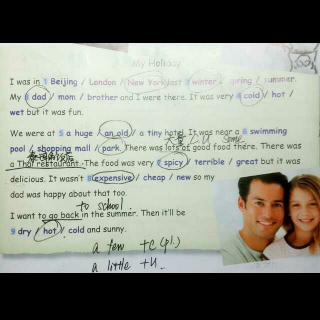 My Holiday
I was in 1 Beijing / London / New York last 2 winter / spring / summer.
My 3 dad / mom / brother and I were there. It was very 4 cold / hot /
wet but it was fun.
We were at 5 a huge / an old / a tiny hotel. It was near a 6 swimming
pool / shopping mall / park. There was lots of good food there. There was
a Thai restaurant. The food was very 7 spicy / terrible / great but it was
delicious. It wasn't 8 expensive / cheap / new so my
dad was happy about that too.
to school.
I want to go back in the summer. Then it'll be
9 dry / hot / cold and sunny.
a few +C (pl.)
a little +U.